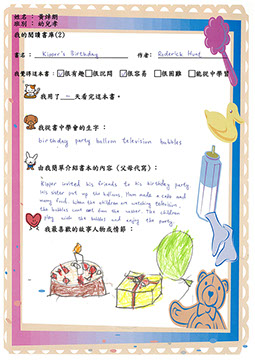 姓名：黃
班別：幼兒孝
我的閱讀書庫(2)
書名：Kipper's Birthday 作者：Roderick Hunt
我覺得這本書：☑很有趣□很沉悶☑很容易□很困難□能從中學習
我用了 一 天看完這本書。
我從書中學會的生字：
birthday party balloon television bubbles
由我簡單介紹書本的內容（父母代寫）：
Kipper invited his friends to his birthday party.
His sister put up the balloons. Mum made a cake and
many food. When the children are watching television,
the bubbles came out from the water. The children
play with the bubbles and enjoy the party.
我最喜歡的故事人物或情節：